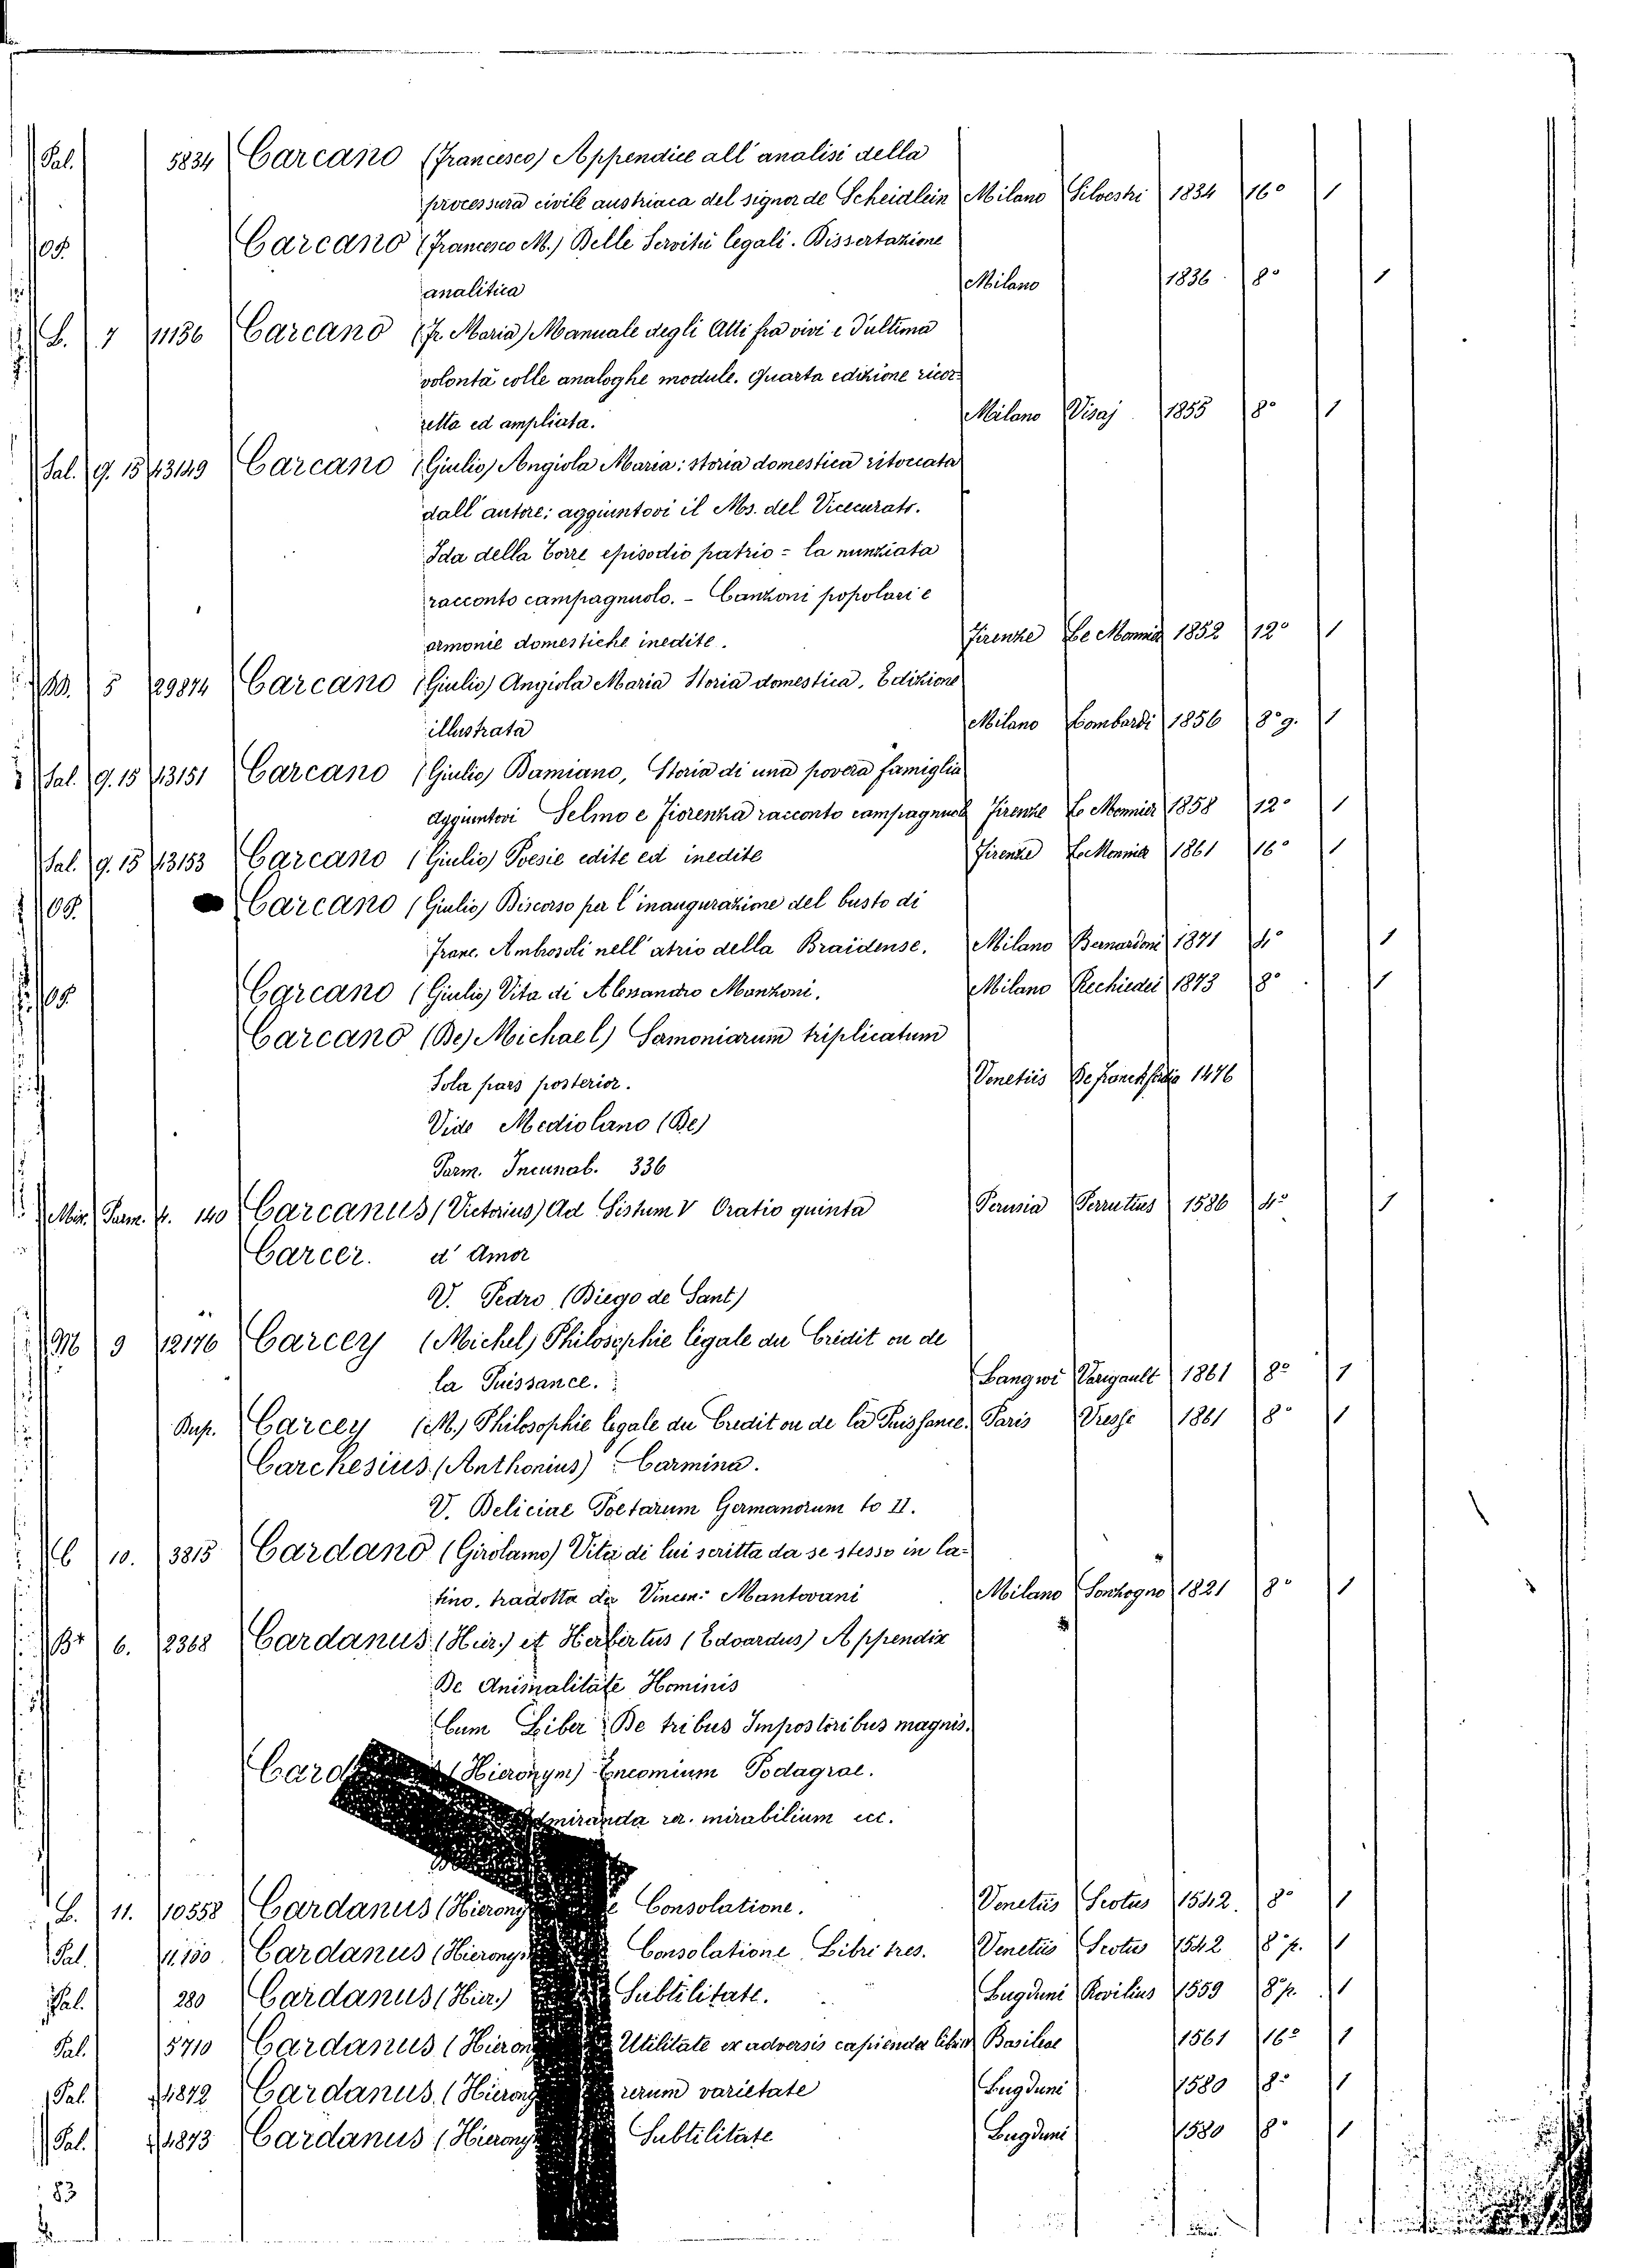 Pal. 5834 Carcano (Francesco) Appendice all' analisi della
processura civile austriaca del signor de Scheidlein Milano Silvestri 1834 16° 1
Carcano (Francesco M.) Delle Servitù legali. Dissertazione
analitica Milano 1836 8° 1
L. 7 11136 Carcano (Fr. Maria) Manuale degli Atti fra vivi e d'ultima
volontà colle analoghe module. Quarta edizione ricor-
retta ed ampliata. Milano Visaj 1855 8° 1
Pal. g. 15 13149 Carcano (Giulio) Angiola Maria: storia domestica ritoccata
dall' autore: aggiuntovi il Ms. del Vicecurato.
Ida della Torre episodio patrio = la nunziata
racconto campagnuolo. - Canzoni popolari e
armonie domestiche inedite. Firenze Le Monnier 1852 12° 1
5 29874 Carcano (Giulio) Angiola Maria Storia domestica. Edizione
illustrata Milano Lombardi 1856 8° g. 1
Pal. g. 15 13151 Carcano (Giulio) Damiano, Storia di una povera famiglia
aggiuntovi Selmo e Fiorenza racconto campagnuolo Firenze Le Monnier 1858 12° 1
Pal. g. 15 13153 Carcano (Giulio) Poesie edite ed inedite Firenze Le Monnier 1861 16° 1
Carcano (Giulio) Discorso per l' inaugurazione del busto di
Franc. Ambrosoli nell' atrio della Braidense. Milano Bernardoni 1871 4° 1
Carcano (Giulio) Vita di Alessandro Manzoni. Milano Rechiedei 1873 8° 1
Carcano (De) Michael) Samoniarum triplicatum
Sola pars posterior. Venetiis 1476
Vide Mediolano (De)
Parm. Incunab. 336
Mis. Parm. 4. 140 Carcanus (Victorius) Ad Sistum V Oratio quinta Perusia Perrutius 1586 4° 1
Carcer. d' Amor
V. Pedro (Diego de Sant)
M 9 12176 Carcey (Michel) Philosophie légale du Crédit ou de
la Puissance. Langwi Varigault 1861 8° 1
Dup. Carcey (M.) Philosophie légale du Credit ou de la Puissance. Paris Dresse 1861 8° 1
Carchesius (Anthonius) Carmina.
V. Deliciae Poetarum Germanorum to II.
C 10. 3815 Cardano (Girolamo) Vita di lui scritta da se stesso in la-
tino. tradotta da Vincen: Mantovani Milano Sonzogno 1821 8° 1
B* 6. 2368 Cardanus (Hier.) et Herbertus (Edoardus) Appendix
De Animalitate Hominis
Cum Liber De tribus Impostoribus magnis.
Card (Hieronym) Encomium Podagrae.
miranda rer. mirabilium ecc.
L. 11. 10558 Cardanus (Hierony Consolatione. Venetiis Scotus 1542. 8° 1
Pal. 11.180 Cardanus (Hierony Consolatione Libri tres. Venetiis Scotus 1542 8° p. 1
Pal. 280 Cardanus (Hier.) Subtilitate. Lugduni Rovilius 1559 8° p. 1
Pal. 5710 Cardanus (Hieron Utilitate ex adversis capienda libri Basileae 1561 16° 1
Pal. 4872 Cardanus (Hierony rerum varietate Lugduni 1580 8° 1
Pal. 4873 Cardanus (Hierony Subtilitate Lugduni 1580 8° 1
83